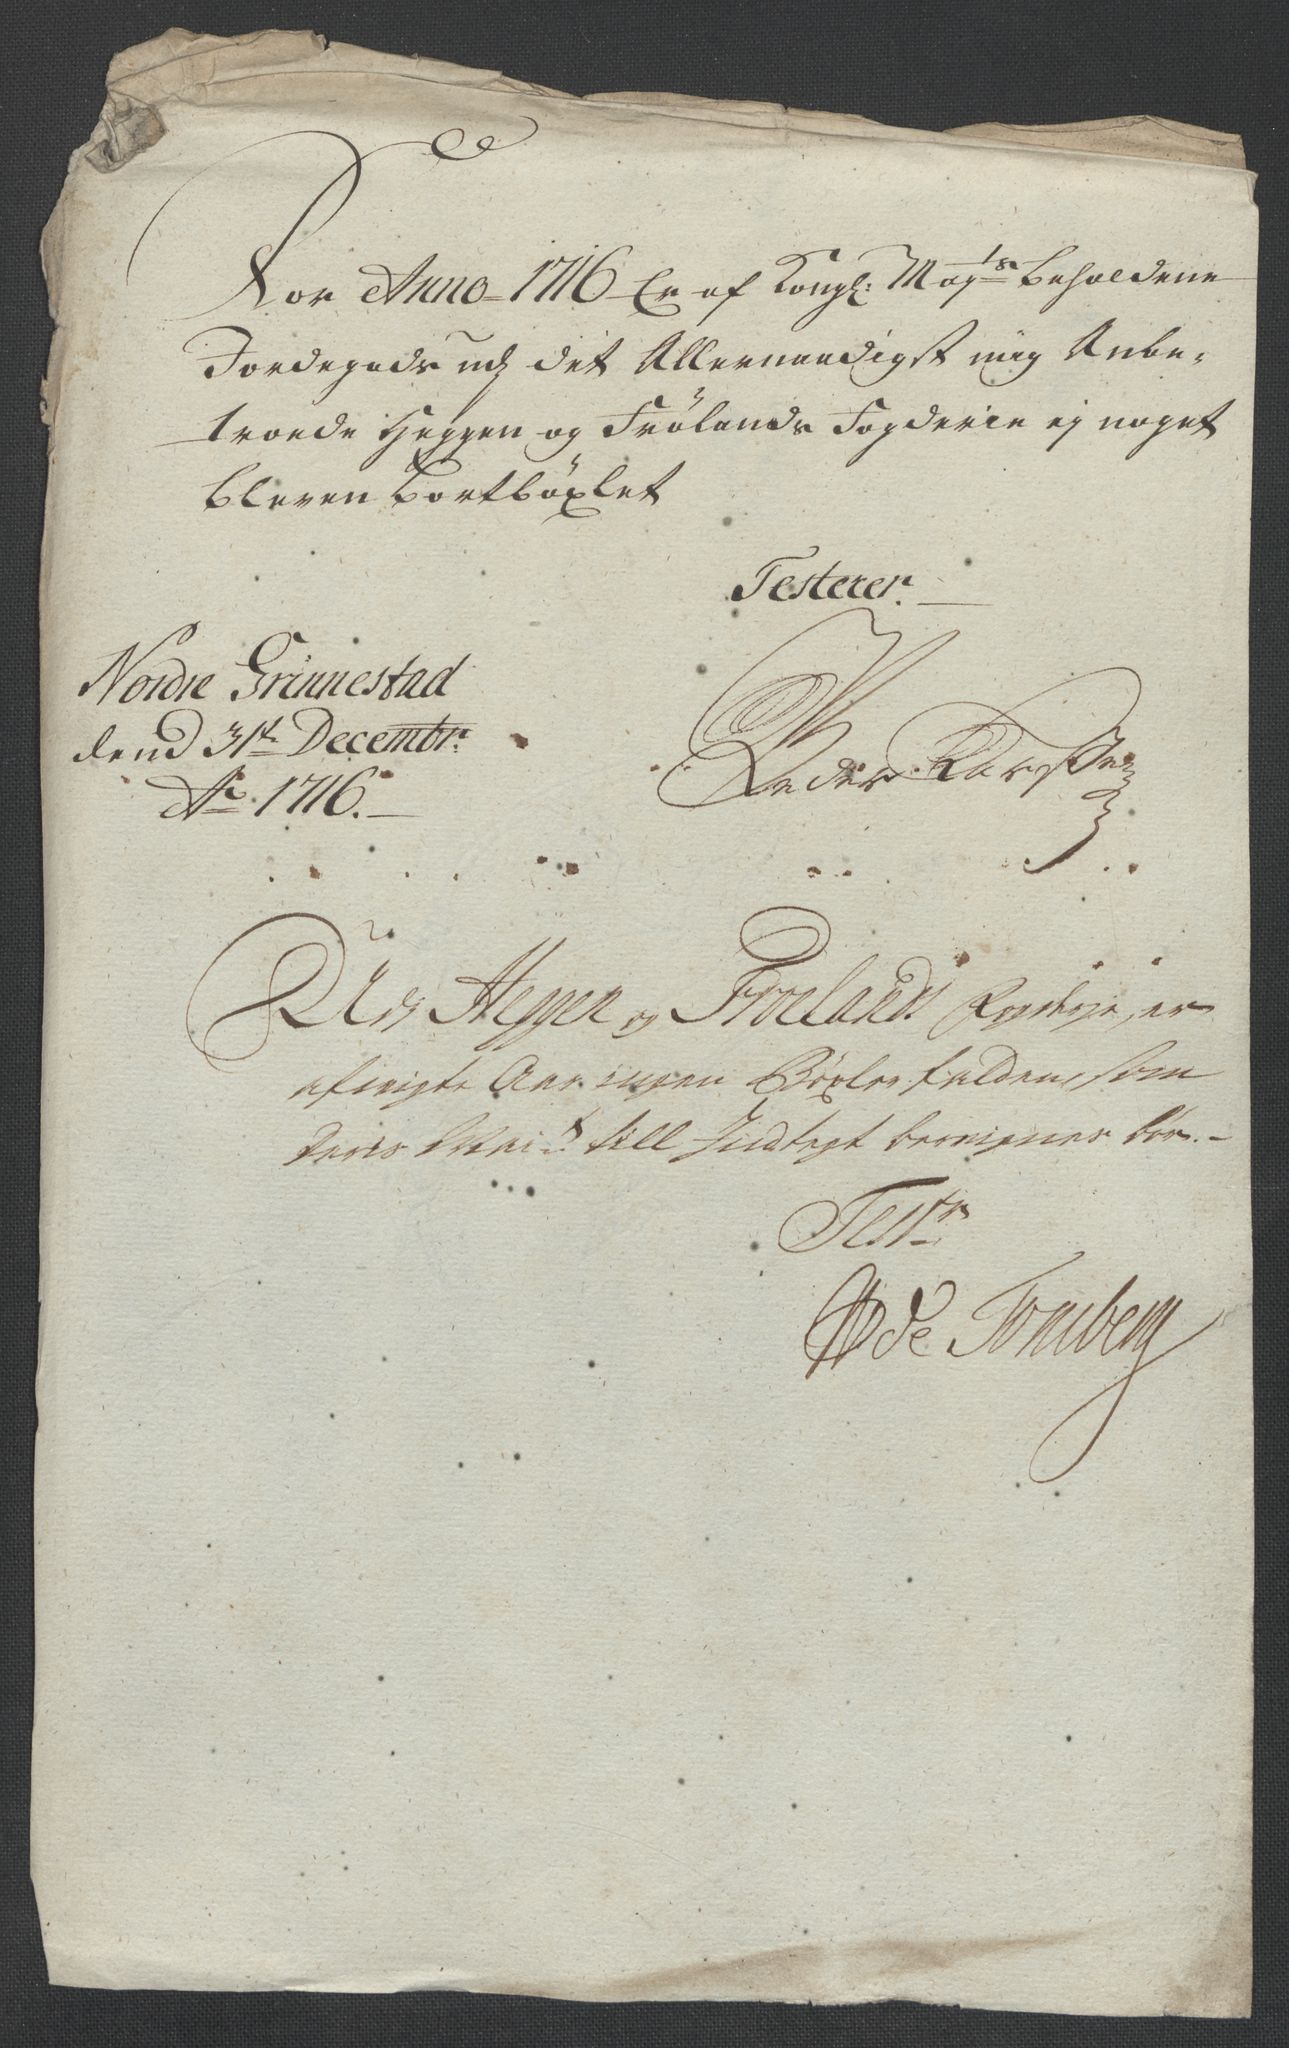 For Anno 1716 Er af Kongl: Mayts beholdene
Jordegods udj det Allernaadigst mig Anbe-
troede Heggen og Frölands Fogderie ej noget
bleven bortböxlet
Testerer.
Nordre Grinnestad
dend 31t Decembr:
Ao 1716.
Peder
Udj Heggen og Froelands Fogderje, er
afvigte Aar ingen Böxler falden, som
deres Mai: till Indtegt bereigner bör.
Testr
de Tonsberg